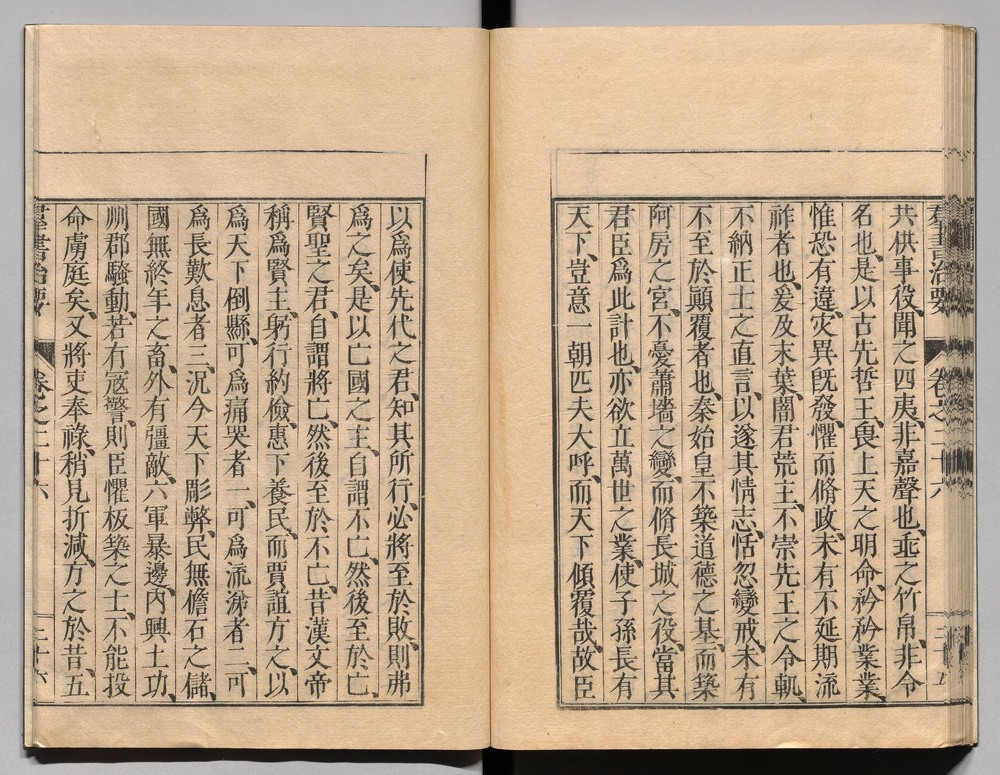 羣書治要 卷之二十六 二十五
共供事役、聞之四夷、非嘉聲也、垂之竹帛、非令
名也、是以古先哲王、畏上天之明命、矜矜業業、
惟恐有違、灾異旣發、懼而脩政、未有不延期流
祚者也、爰及末葉、闇君荒主、不崇先王之令軌、
不納正士之直言、以遂其情志、恬忽變戒、未有
不至於顚覆者也、秦始皇不築道德之基、而築
阿房之宮、不憂蕭墻之變、而脩長城之役、當其
君臣爲此計也、亦欲立萬世之業、使子孫長有
天下、豈意一朝匹夫大呼、而天下傾覆哉、故臣
以爲使先代之君、知其所行、必將至於敗、則弗
爲之矣、是以亡國之主、自謂不亡、然後至於亡、
賢聖之君、自謂將亡、然後至於不亡、昔漢文帝
稱爲賢主、躬行約儉、惠下養民、而賈誼方之、以
爲天下倒縣、可爲痛哭者一、可爲流涕者二、可
爲長歎息者三、況今天下彫弊、民無儋石之儲、
國無終年之畜、外有彊敵、六軍暴邊、內興土功、
州郡騷動、若有寇警、則臣懼板築之士、不能投
命虜庭矣、又將吏奉祿、稍見折減、方之於昔、五
羣書治要 卷之二十六 二十六